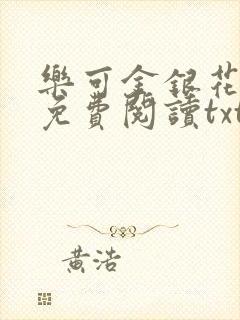 樂可金銀花
免費閱讀txt
黃浩